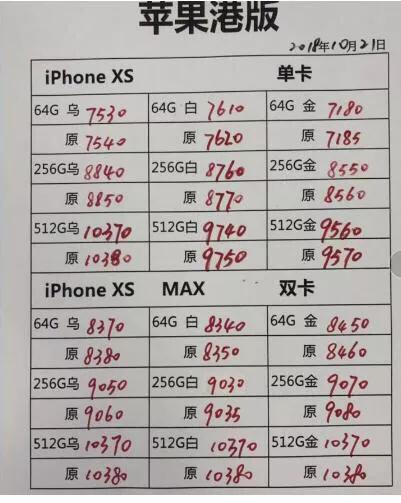 苹果港版
2018年10月21日
iPhone XS 单卡
64G 乌 7530 64G 白 7610 64G 金 7180
原 7540 原 7620 原 7185
256G乌 8840 256G白 8760 256G金 8550
原 8850 原 8770 原 8560
512G乌 10370 512G白 9740 512G金 9560
原 10380 原 9750 原 9570
iPhone XS MAX 双卡
64G 乌 8370 64G 白 8340 64G 金 8450
原 8380 原 8350 原 8460
256G乌 9050 256G白 9030 256G金 9070
原 9060 原 9035 原 9080
512G乌 10370 512G白 10370 512G金 10370
原 10380 原 10380 原 10380